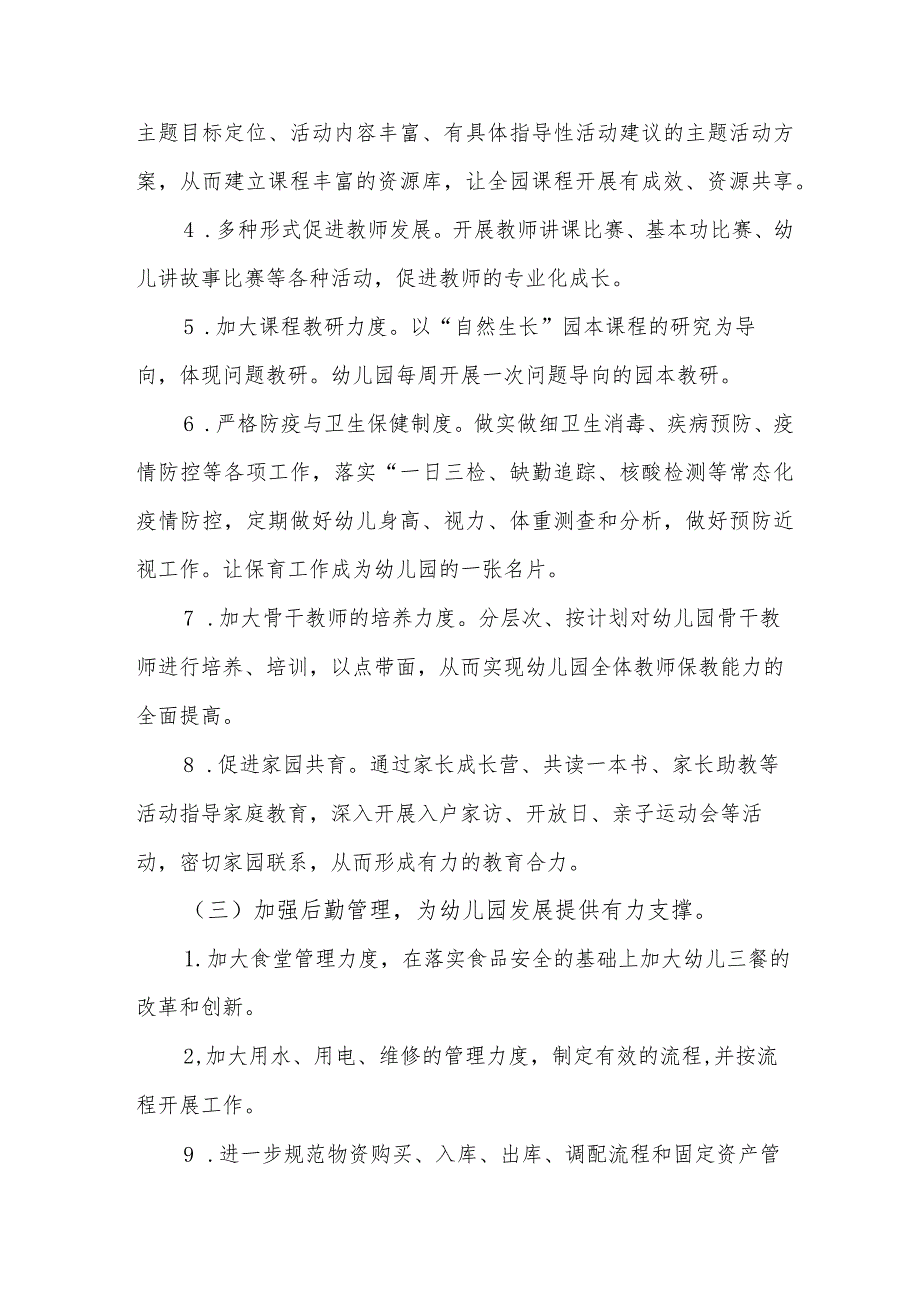 主题目标定位、活动内容丰富、有具体指导性活动建议的主题活动方
案，从而建立课程丰富的资源库，让全园课程开展有成效、资源共享。
4 .多种形式促进教师发展。开展教师讲课比赛、基本功比赛、幼
儿讲故事比赛等各种活动，促进教师的专业化成长。
5 .加大课程教研力度。以“自然生长”园本课程的研究为导
向，体现问题教研。幼儿园每周开展一次问题导向的园本教研。
6 .严格防疫与卫生保健制度。做实做细卫生消毒、疾病预防、疫
情防控等各项工作，落实“一日三检、缺勤追踪、核酸检测等常态化
疫情防控，定期做好幼儿身高、视力、体重测查和分析，做好预防近
视工作。让保育工作成为幼儿园的一张名片。
7 .加大骨干教师的培养力度。分层次、按计划对幼儿园骨干教
师进行培养、培训，以点带面，从而实现幼儿园全体教师保教能力的
全面提高。
8 .促进家园共育。通过家长成长营、共读一本书、家长助教等
活动指导家庭教育，深入开展入户家访、开放日、亲子运动会等活
动，密切家园联系，从而形成有力的教育合力。
（三）加强后勤管理，为幼儿园发展提供有力支撑。
1.加大食堂管理力度，在落实食品安全的基础上加大幼儿三餐的
改革和创新。
2,加大用水、用电、维修的管理力度，制定有效的流程,并按流
程开展工作。
9 .进一步规范物资购买、入库、出库、调配流程和固定资产管